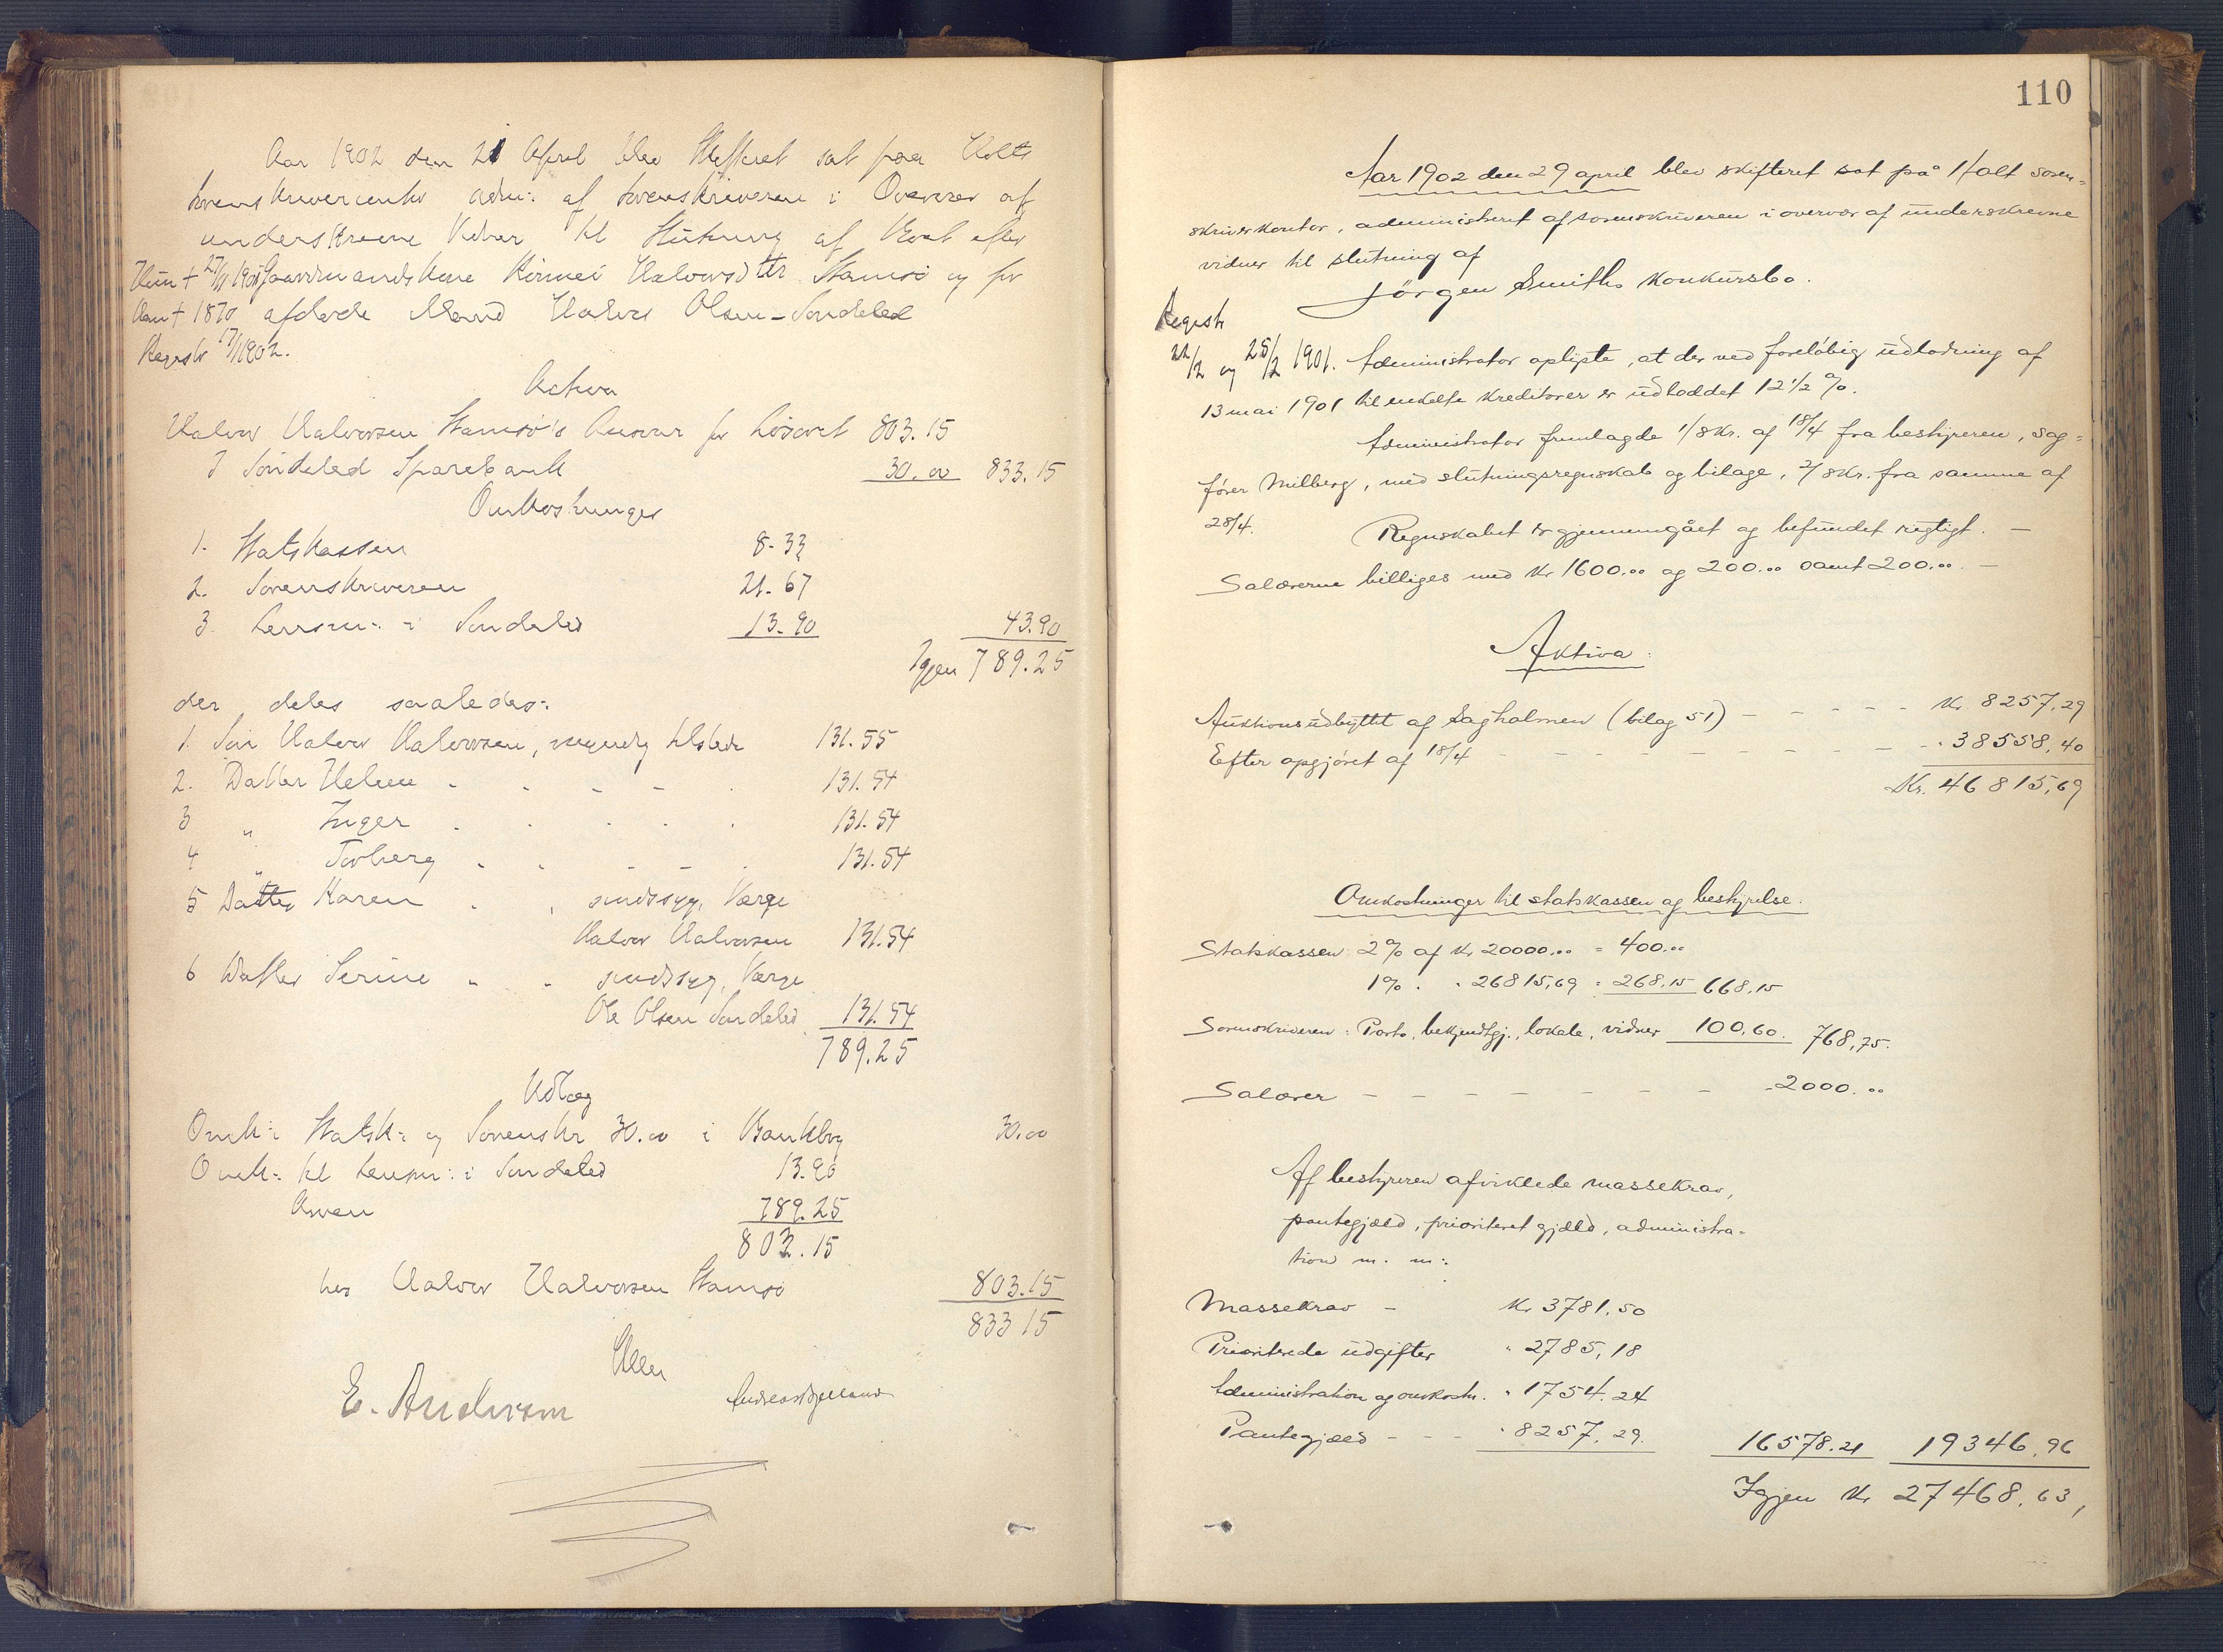 Aar 1902 den 21 April blev Skifteret sat paa Holts
Sorenskrivercontor adm: af Sorenskriveren i Overvær af
underskrevne Vidner til Slutning af Boet efter
Hun † 27/11 1901 Gaardmandskone Kirsti Halvorsdtr Stamsø og før
Han † 1870 afdøde Mand Halvor Olsen-Søndeled
Registr 17/1 1902.
Activa
Halvor Halvorsen Stamsø's Ansvar for Løsøret 803.15
I Søndeled Sparebank 30.00 833.15
Omkostninger
1. Statskassen 8.33
2. Sorenskriveren 21.67
3. Lensm: i Søndeled 13.90 43.90
Igjen 789.25
der deles saaledes:
1. Søn Halvor Halvorsen, myndig tilstede 131.55
2. Datter Helene 131.54
3 " Inger 131.54
4 " Torberg 131.54
5 Datter Karen sindssyg, Værge
Halvor Halvorsen 131.54
6 Datter Serine sindssyg, Værge
Ole Olsen Søndeled 131.54
789.25
Udlæg
Omk: Statsk: og Sorenskr 30.00 i Bankbog 30.00
Omk: til Lensm: i Søndeled 13.90
Arven 789.25
803.15
hos Halvor Halvorsen Stamsø 803.15
833 15
E. Anderssen
110
Aar 1902 den 29 april blev skifteret sat på Holt soren=
skriverkontor, administreret af sorenskriveren i overvær af underskrevne
vidner til slutning af
Jörgen Smiths konkursbo.
Registr
22/2 og 25/2 1901. Administrator oplyste, at der ved foreløbig udlodning af
13 mai 1901 til enkelte kreditorer er udloddet 12 1/2 %.
Administrator fremlagde 1/8 Kr. af 18/4 fra bestyreren, sag=
fører Milberg, med slutningsregnskab og bilage, 2/8 Kr. fra samme af
28/4. Regnskabet er gjennemgået og befundet rigtigt. —
Salærerne billiges med Kr 1600.00 og 200.00 samt 200.00. —
Aktiva:
Auktionsudbyttet af Sagholmen (bilag 51) - - - - - Kr. 8257,29
Efter opgjøret af 18/4 - - - - - - - - - " 38558,40
Kr. 46815,69
Omkostninger til statskassen og bestyrelse:
Statskassen 2% af Kr 20000.00 = 400.00
1% " " 26815,69 = 268,15 668,15
Sorenskriveren: Porto, bekjendtgj., lokale, vidner 100,60. 768,75.
Salærer - - - - - - - 2000.00
Af bestyreren afviklede massekrav,
pantegjæld, prioriteret gjæld, administra-
tion m. m:
Massekrav - Kr 3781,50
Prioriterede udgifter " 2785,18
Administration og omkostn. " 1754.24
Pantegjæld - - - " 8257.29. 16578.21 19346.96
Igjen Kr 27468,63,